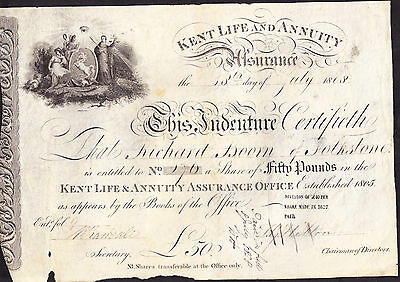 KENT LIFE AND ANNUITY
Assurance
the 13th day of July 1808
This Indenture Certifieth
That Richard Boorn of Folkstone
is entitled to No a Share of Fifty Pounds in the
KENT LIFE & ANNUITY ASSURANCE OFFICE Established 1805
as appears by the Books of the Office
DIVISION OF £10 PER
SHARE MADE IN 1827.
PAID.
Entd. fol
£50
Secretary. Chairman of Directors.
N.B. Shares transferable at the Office only.